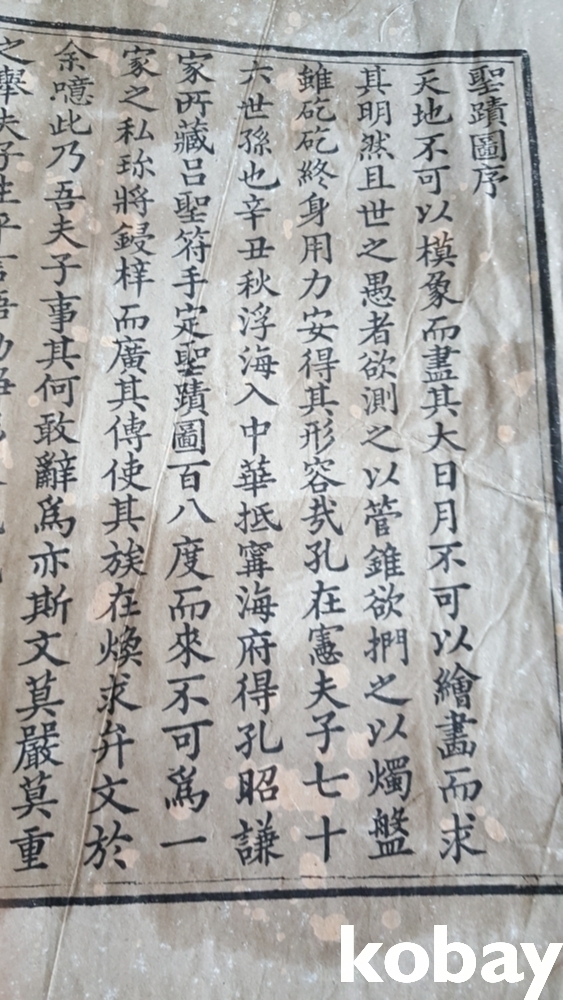 聖蹟圖序
天地不可以模象而盡其大日月不可以繪畵而求
其明然且世之愚者欲測之以管錐欲捫之以燭盤
雖矻矻終身用力安得其形容㢤孔在憲夫子七十
六世孫也辛丑秋浮海入中華抵寗海府得孔昭謙
家所藏吕聖符手定聖蹟圖百八度而來不可爲一
家之私珎將鋟梓而廣其傳使其族在煥求弁文於
余噫此乃吾夫子事其何敢辭爲亦斯文莫嚴莫重
之擧夫子生平言語
kobay